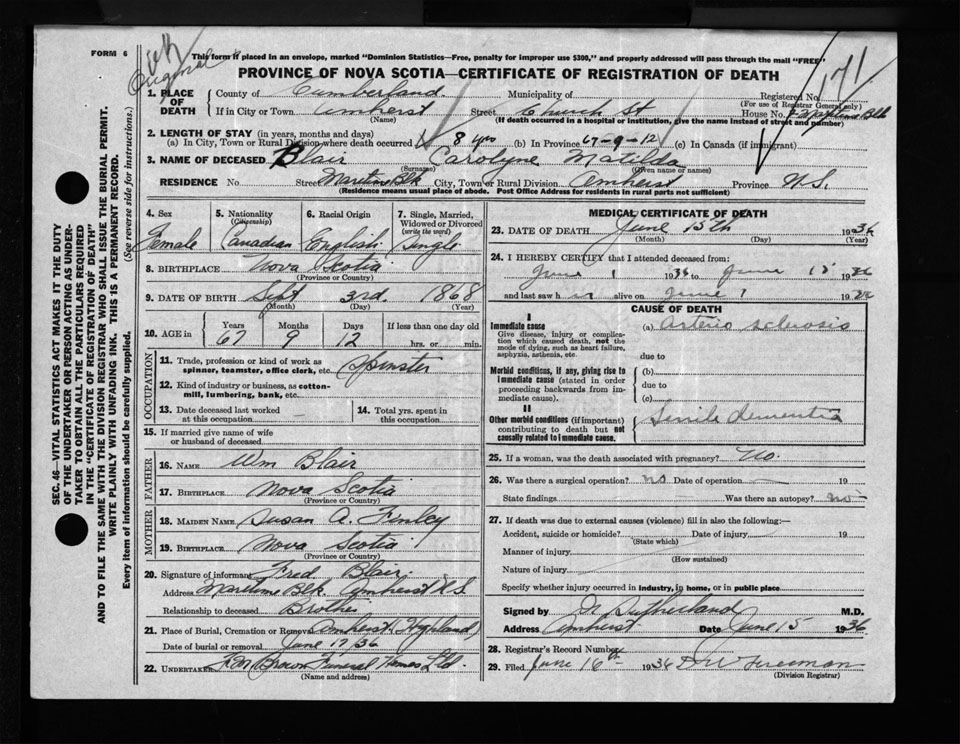 FORM 6
Original
This form if placed in an envelope, marked "Dominion Statistics—Free, penalty for improper use $300," and properly addressed will pass through the mail "FREE"
PROVINCE OF NOVA SCOTIA—CERTIFICATE OF REGISTRATION OF DEATH
171
1. PLACE OF DEATH
County of Cumberland Municipality of Registered No.
(For use of Registrar General only)
If in City or Town Amherst Street Church St House No. Blk
(Name) (If death occurred in a hospital or institution, give the name instead of street and number)
2. LENGTH OF STAY (in years, months and days)
(a) In City, Town or Rural Division where death occurred 8 yrs (b) In Province 67-9-12 (c) In Canada (if immigrant)
3. NAME OF DECEASED Blair Carolyne Matilda
(Surname) (Given name or names)
RESIDENCE No. Street Maritime Blk City, Town or Rural Division Amherst Province N.S.
(Residence means usual place of abode. Post Office Address for residents in rural parts not sufficient)
SEC. 46—VITAL STATISTICS ACT MAKES IT THE DUTY
OF THE UNDERTAKER OR PERSON ACTING AS UNDER-
TAKER TO OBTAIN ALL THE PARTICULARS REQUIRED
IN THE "CERTIFICATE OF REGISTRATION OF DEATH"
AND TO FILE THE SAME WITH THE DIVISION REGISTRAR WHO SHALL ISSUE THE BURIAL PERMIT.
WRITE PLAINLY WITH UNFADING INK. THIS IS A PERMANENT RECORD.
Every item of information should be carefully supplied. (See reverse side for instructions.)
4. Sex
Female
5. Nationality
(Citizenship)
Canadian
6. Racial Origin
English
7. Single, Married,
Widowed or Divorced
(write the word)
Single
8. BIRTHPLACE Nova Scotia
(Province or Country)
9. DATE OF BIRTH Sept 3rd. 1868
(Month) (Day) (Year)
10. AGE in
Years Months Days If less than one day old
67 9 12 hrs. or min.
OCCUPATION
11. Trade, profession or kind of work as
spinner, teamster, office clerk, etc. Spinster
12. Kind of industry or business, as cotton-
mill, lumbering, bank, etc.
13. Date deceased last worked
at this occupation
14. Total yrs. spent in
this occupation
15. If married give name of wife
or husband of deceased
FATHER
16. NAME Wm Blair
17. BIRTHPLACE Nova Scotia
(Province or Country)
MOTHER
18. MAIDEN NAME Susan A. Finley
19. BIRTHPLACE Nova Scotia
(Province or Country)
20. Signature of informant Fred Blair
Address Maritime Blk. Amherst N.S.
Relationship to deceased Brother
21. Place of Burial, Cremation or Removal Amherst Highland
Date of burial or removal June 17/36
22. UNDERTAKER Brown Funeral Homes Ltd.
(Name and address)
MEDICAL CERTIFICATE OF DEATH
23. DATE OF DEATH June 15th 1936
(Month) (Day) (Year)
24. I HEREBY CERTIFY that I attended deceased from:
June 1 1936 to June 15 1936
and last saw her alive on June 1 1936
CAUSE OF DEATH
I
Immediate cause
Give disease, injury or complica-
tion which caused death, not the
mode of dying, such as heart failure,
asphyxia, asthenia, etc.
(a) Arterio sclerosis
due to
Morbid conditions, if any, giving rise to
immediate cause (stated in order
proceeding backwards from im-
mediate cause).
(b)
due to
(c)
II
Other morbid conditions (if important)
contributing to death but not
causally related to immediate cause.
Senile dementia
25. If a woman, was the death associated with pregnancy? No.
26. Was there a surgical operation? no Date of operation 19
State findings Was there an autopsy? no
27. If death was due to external causes (violence) fill in also the following:—
Accident, suicide or homicide? Date of injury 19
(State which)
Manner of injury
(How sustained)
Nature of injury
Specify whether injury occurred in industry, in home, or in public place
Signed by Sutherland M.D.
Address Amherst Date June 15 1936
28. Registrar's Record Number
29. Filed June 16th 1936 Freeman
(Division Registrar)